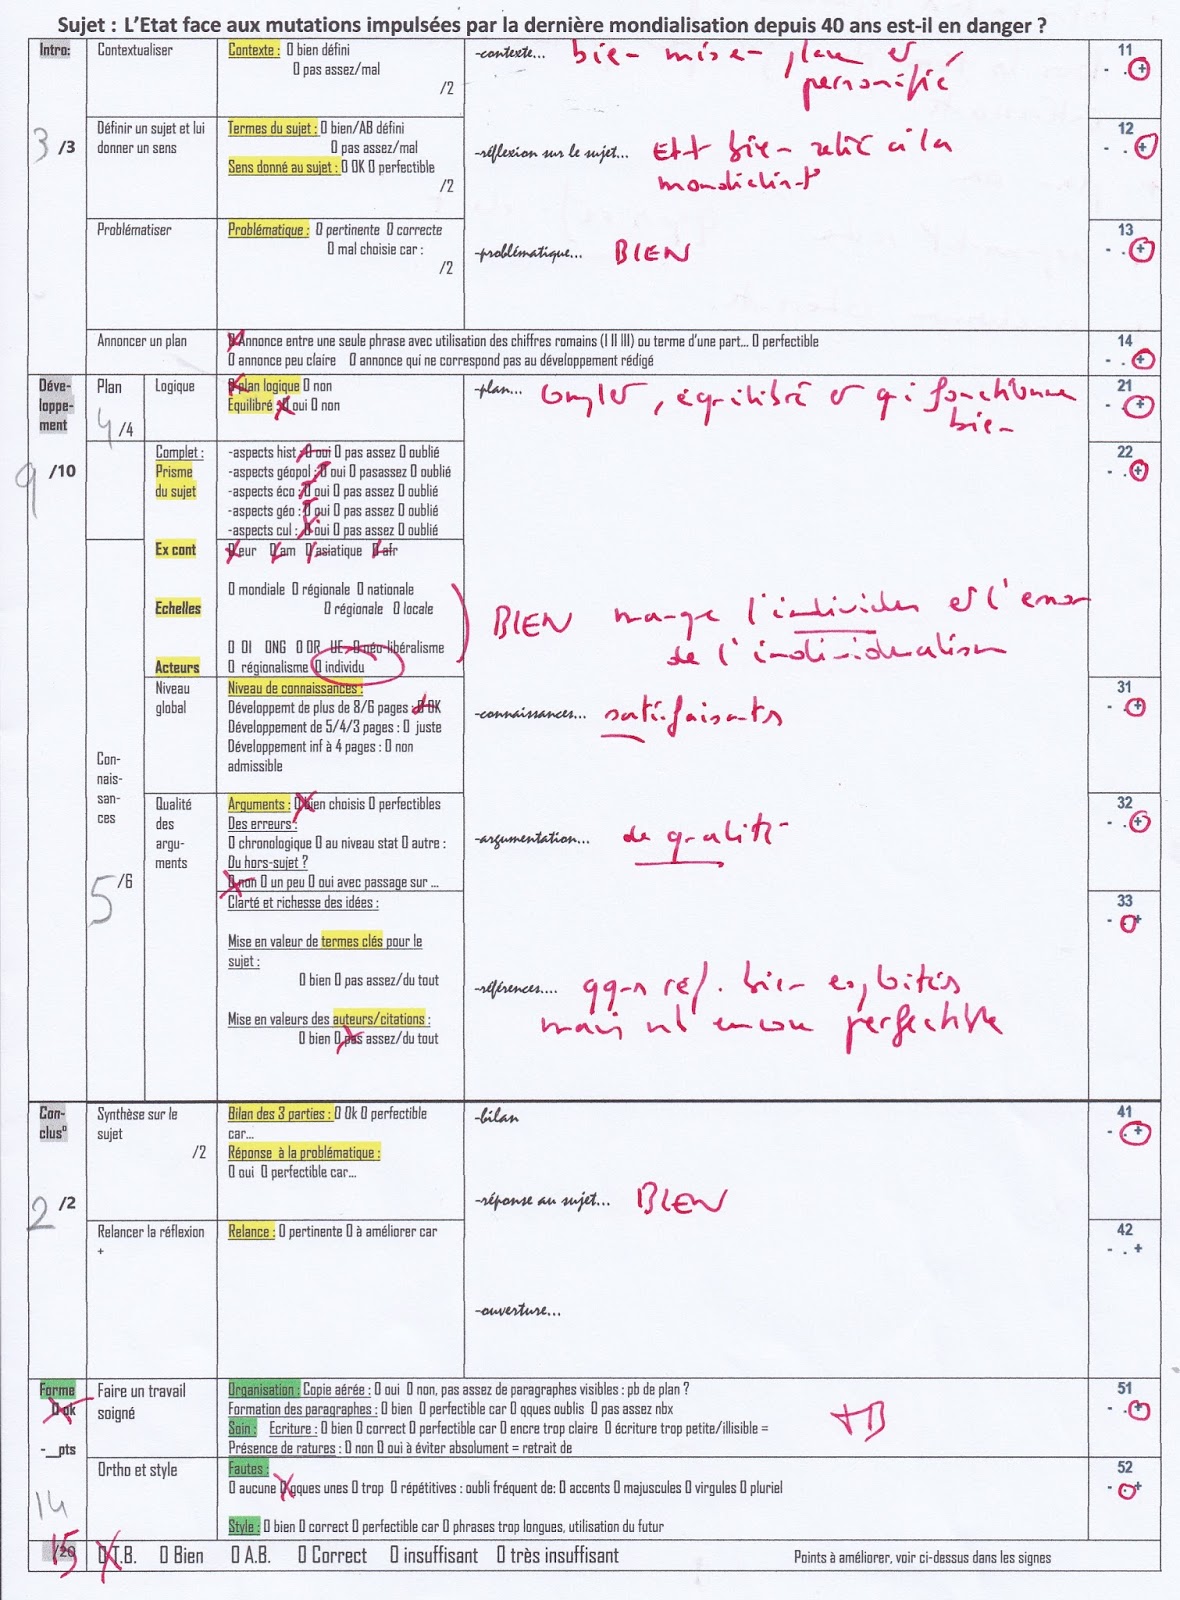 Sujet : L'Etat face aux mutations impulsées par la dernière mondialisation depuis 40 ans est-il en danger ?
Intro:
3 /3
Contextualiser
Contexte : 0 bien défini
0 pas assez/mal
/2
-contexte... bien mise en place et
personnifié
11
- . +
Définir un sujet et lui
donner un sens
Termes du sujet : 0 bien/AB défini
0 pas assez/mal
Sens donné au sujet : 0 OK 0 perfectible
/2
-réflexion sur le sujet... Etat bien relié à la
12
- . +
Problématiser
Problématique : 0 pertinente 0 correcte
0 mal choisie car :
/2
-problématique... BIEN
13
- . +
Annoncer un plan
0 Annonce entre une seule phrase avec utilisation des chiffres romains (I II III) ou terme d'une part... 0 perfectible
0 annonce peu claire 0 annonce qui ne correspond pas au développement rédigé
14
- . +
Déve-
loppe-
ment
9 /10
Plan
4 /4
Logique
0 plan logique 0 non
Equilibré : 0 oui 0 non
-plan... complet, équilibré et qui fonctionne
bien
21
- . +
Complet :
Prisme
du sujet
-aspects hist : 0 oui 0 pas assez 0 oublié
-aspects géopol : 0 oui 0 passassez 0 oublié
-aspects éco : 0 oui 0 pas assez 0 oublié
-aspects géo : 0 oui 0 pas assez 0 oublié
-aspects cul : 0 oui 0 pas assez 0 oublié
22
- . +
Ex cont
0 eur 0 am 0 asiatique 0 afr
Echelles
0 mondiale 0 régionale 0 nationale
0 régionale 0 locale
BIEN manque l'individu et l'essor
de l'individualisme
Acteurs
0 OI ONG 0 OR UE 0 néo-libéralisme
0 régionalisme 0 individu
Con-
nais-
san-
ces
5 /6
Niveau
global
Niveau de connaissances :
Développemt de plus de 8/6 pages : 0 OK
Développement de 5/4/3 pages : 0 juste
Développement inf à 4 pages : 0 non
admissible
-connaissances... satisfaisants
31
- . +
Qualité
des
argu-
ments
Arguments : 0 bien choisis 0 perfectibles
Des erreurs :
0 chronologique 0 au niveau stat 0 autre :
Du hors-sujet ?
0 non 0 un peu 0 oui avec passage sur ...
-argumentation... de qualité
32
- . +
Clarté et richesse des idées :
Mise en valeur de termes clés pour le
sujet :
0 bien 0 pas assez/du tout
Mise en valeurs des auteurs/citations :
0 bien 0 pas assez/du tout
-références.... qq-s réf. bien exploités
mais nb encore perfectible
33
- . +
Con-
clus°
2 /2
Synthèse sur le
sujet
/2
Bilan des 3 parties : 0 Ok 0 perfectible
car...
Réponse à la problématique :
0 oui 0 perfectible car...
-bilan
-réponse au sujet... BIEN
41
- . +
Relancer la réflexion
+
Relance : 0 pertinente 0 à améliorer car
-ouverture...
42
- . +
Forme
0 ok
-__pts
Faire un travail
soigné
Organisation : Copie aérée : 0 oui 0 non, pas assez de paragraphes visibles : pb de plan ?
Formation des paragraphes : 0 bien 0 perfectible car 0 qques oublis 0 pas assez nbx
Soin : Ecriture : 0 bien 0 correct 0 perfectible car 0 encre trop claire 0 écriture trop petite/illisible =
Présence de ratures : 0 non 0 oui à éviter absolument = retrait de
TB
51
- . +
Ortho et style
Fautes :
0 aucune 0 qques unes 0 trop 0 répétitives : oubli fréquent de: 0 accents 0 majuscules 0 virgules 0 pluriel
Style : 0 bien 0 correct 0 perfectible car 0 phrases trop longues, utilisation du futur
52
- . +
14
15 /20
0 T.B. 0 Bien 0 A.B. 0 Correct 0 insuffisant 0 très insuffisant
Points à améliorer, voir ci-dessus dans les signes